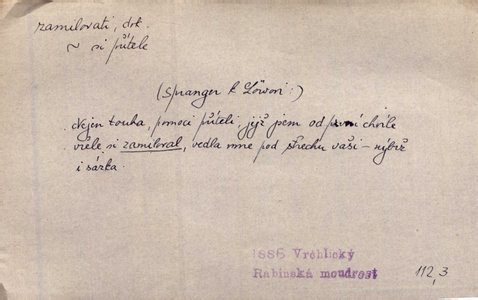 zamilovati, dok.
~ si přítele
(Spranger k Löwovi:)
Nejen touha, pomoci příteli, jejž jsem od první chvíle
vřele si zamiloval, vedla mne pod střechu vaši – nýbrž
i sázka.
1886 Vrchlický
Rabínská moudrost
112,3